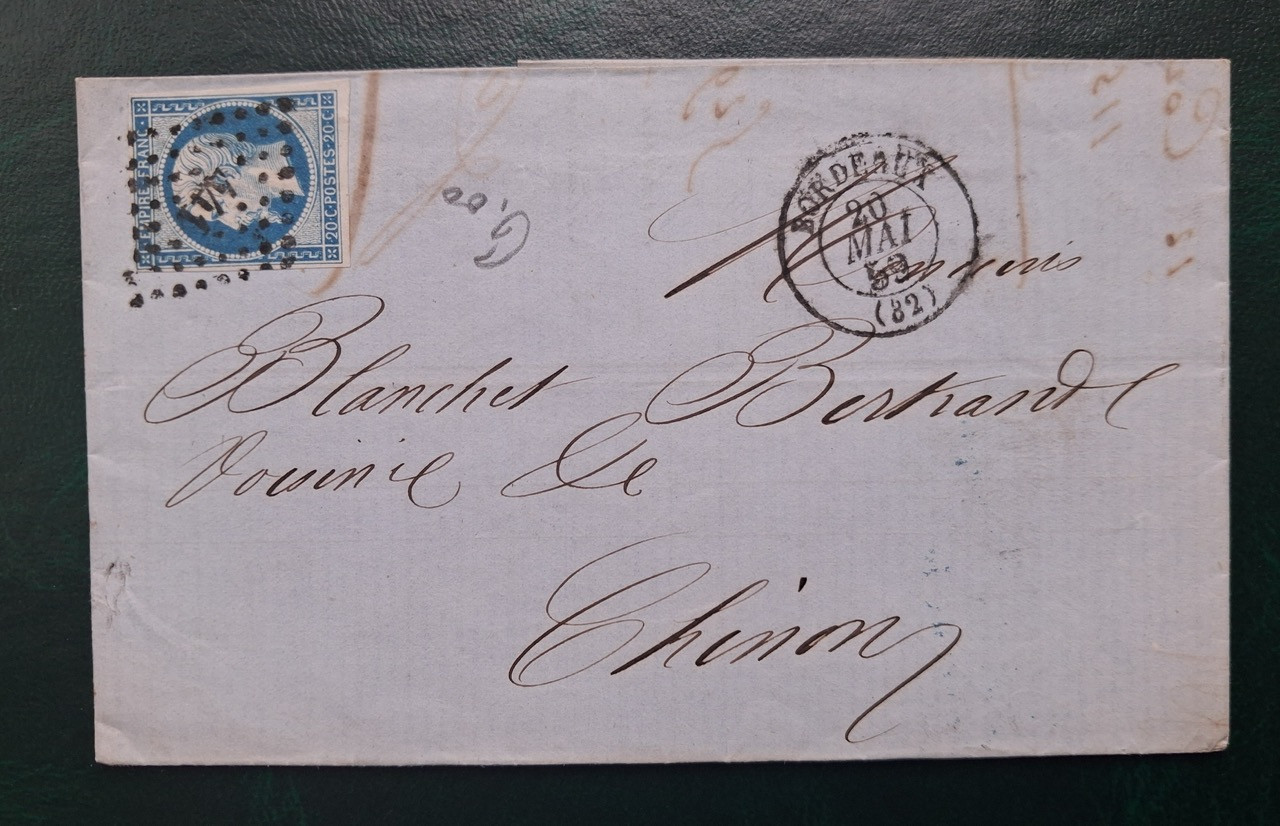 EMPIRE FRANC
20·C·POSTES·20·C·
441
G,00
BORDEAUX
20
MAI
59
(32)
Messieurs
Blanchet Bertrand
Voisinie De
Chinon